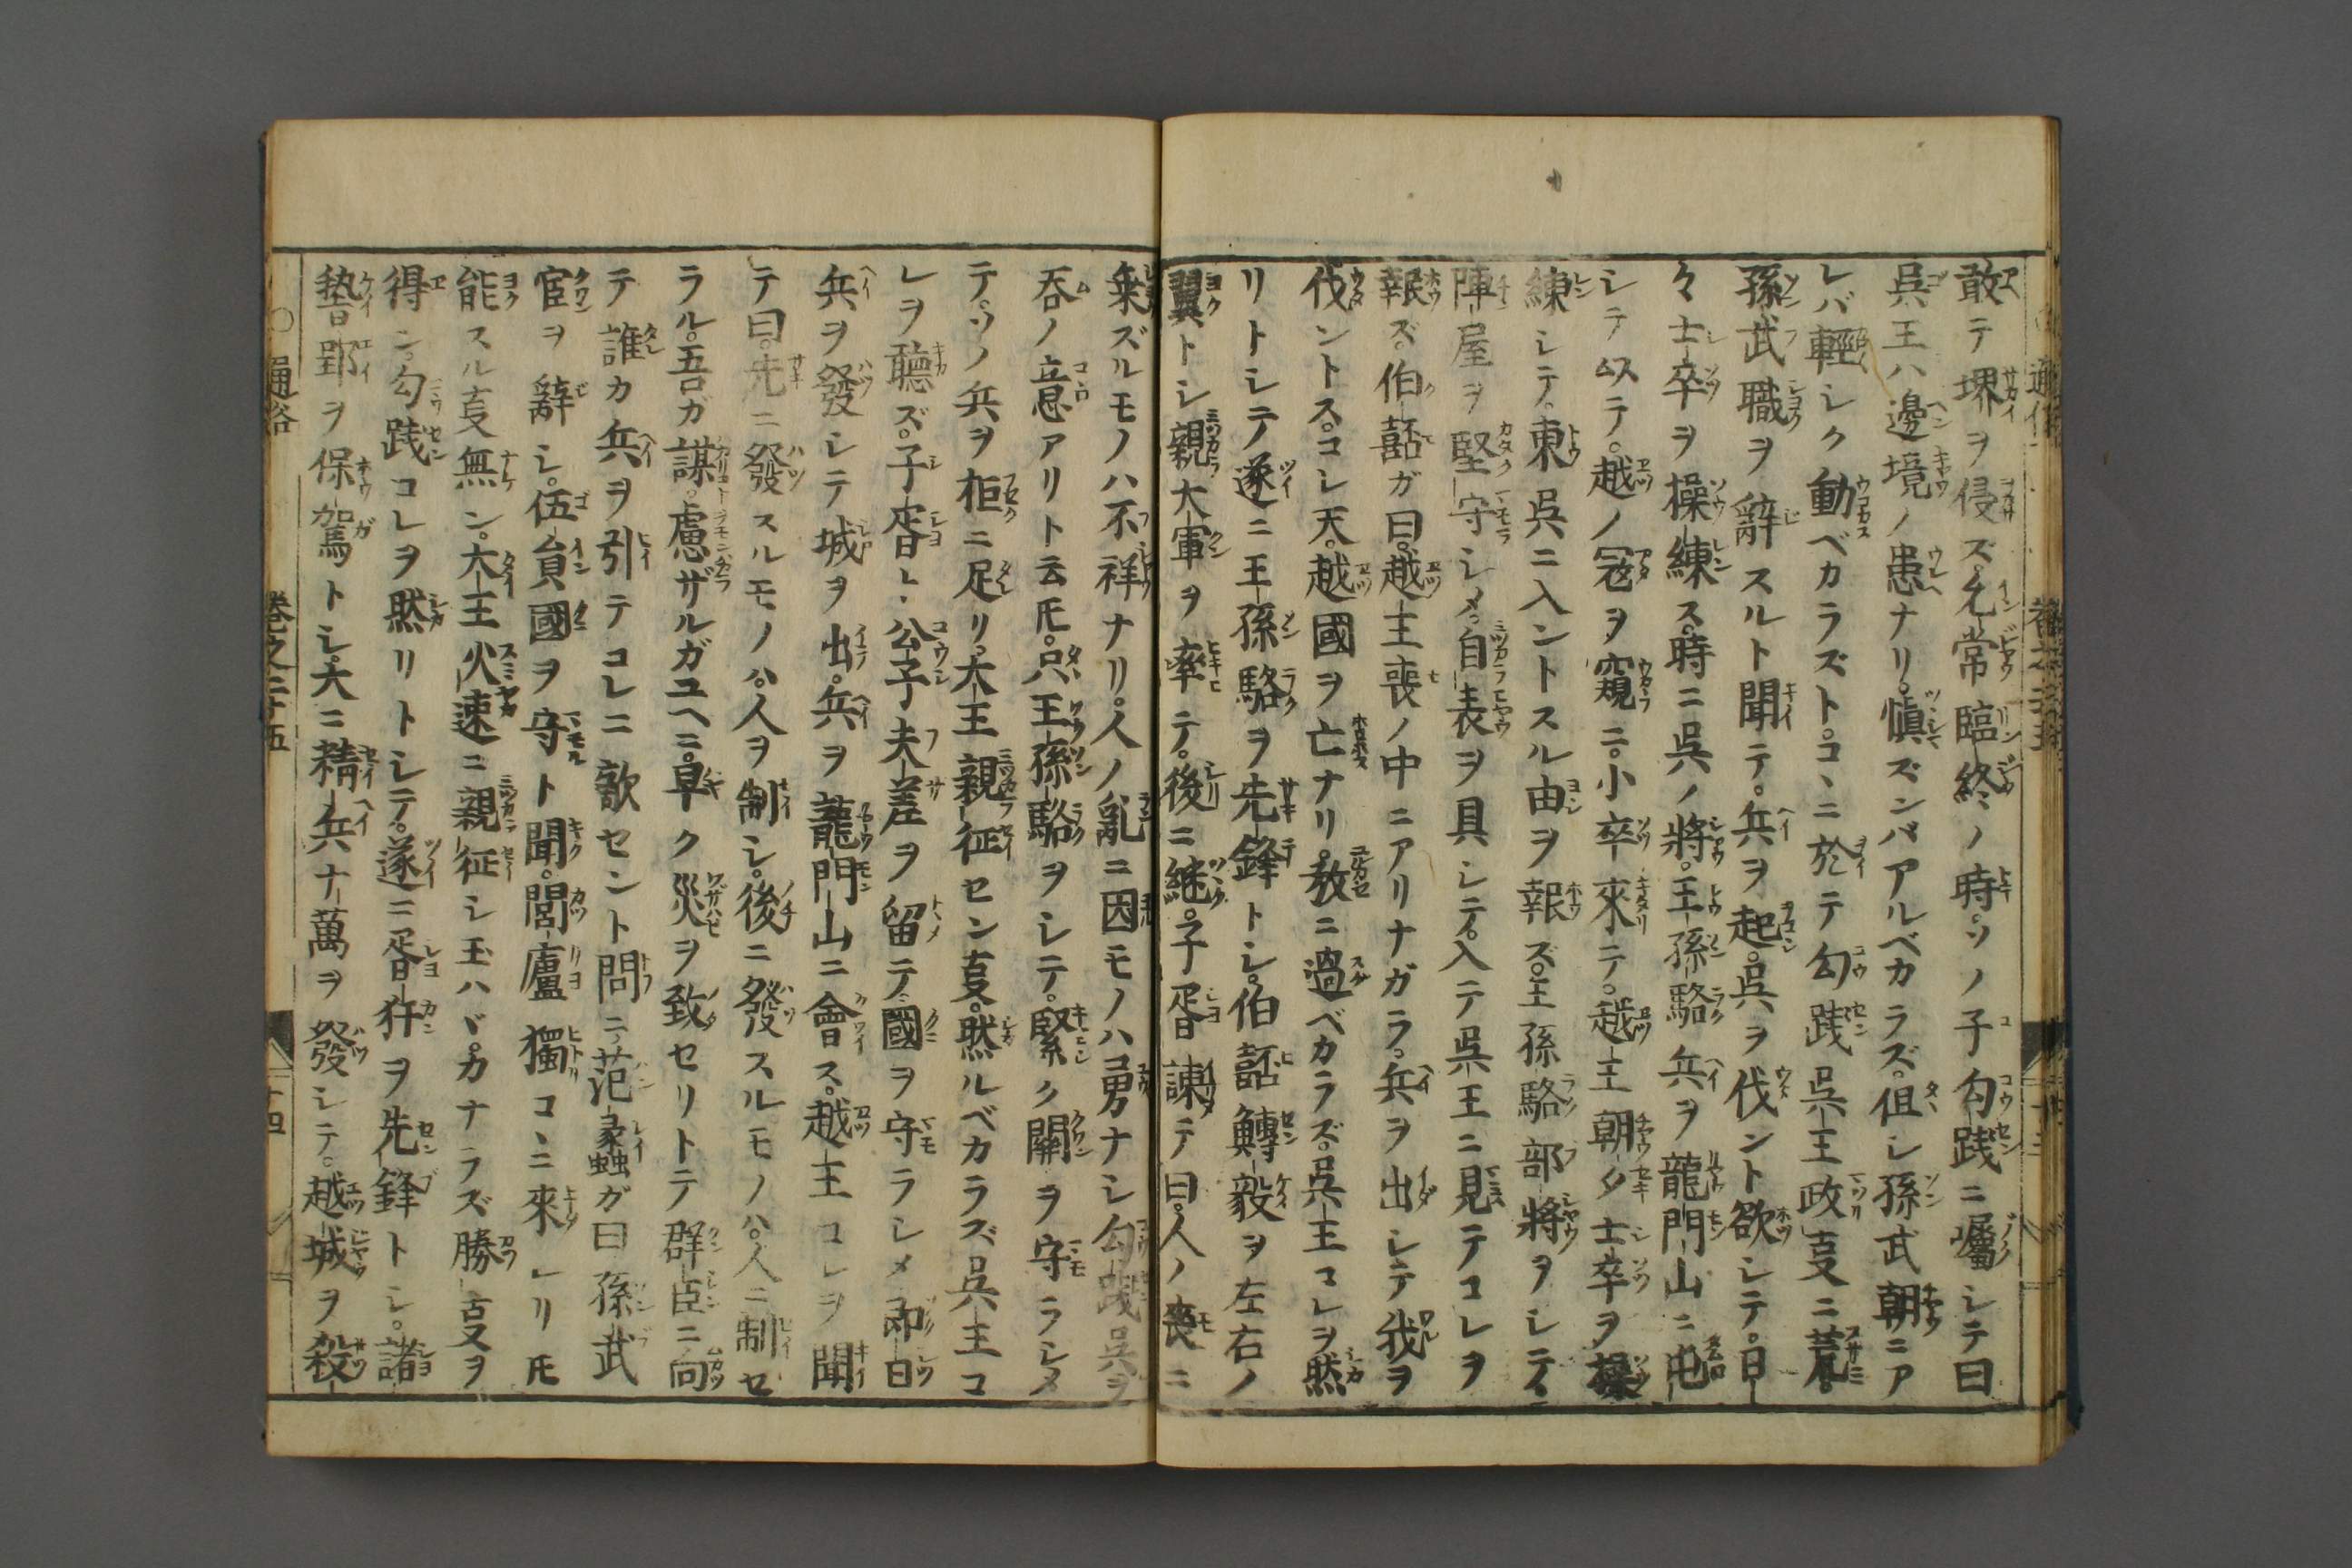 敢テ堺ヲ侵ズ允常臨終ノ時ソノ子勾践ニ囑シテ曰
呉王ハ邊境ノ患ナリ。慎ズンバアルベカラズ。但シ孫武朝ニア
レバ輕シク動ベカラズト。コヽニ於テ勾践呉王政叓ニ荒。
孫武職ヲ辭スルト聞テ。兵ヲ起。呉ヲ伐ント欲シテ。日
々士卒ヲ操練ス。時ニ呉ノ將。王孫駱兵ヲ龍門山ニ屯
シテ。越ノ冦ヲ窺ニ。小卒來テ。越王朝夕士卒ヲ操
練シテ。東呉ニ入ントスル由ヲ報ズ。王孫駱部將ヲシテ
陣屋ヲ堅守シメ。自表ヲ具シテ。入テ呉王ニ見テコレヲ
報ズ。伯嚭ガ曰。越王喪ノ中ニアリナガラ。兵ヲ出シテ我ヲ
伐ントス。コレ天。越國ヲ亡ナリ。敎ニ過ベカラズ。呉王コレヲ然
リトシテ遂ニ王孫駱ヲ先鋒トシ。伯嚭鱄毅ヲ左右ノ
翼トシ親大軍ヲ率テ。後ニ継。子胥諌テ曰。人ノ喪ニ
棄ズルモノハ不祥ナリ。人ノ亂ニ因モノハ勇ナシ勾践呉ヲ
呑ノ意アリト云𪜈。只王孫駱ヲシテ。緊ク關ヲ守ラシメ
テ。ソノ兵ヲ柜ニ足リ。大王親征セン叓。然ルベカラズ呉王コ
レヲ聽ズ。子胥ト公子夫差ヲ留テ國ヲ守ラシメ即日
兵ヲ發シテ城ヲ出。兵ヲ龍門山ニ會ス。越王コレヲ聞
テ曰。先ニ發スルモノハ。人ヲ制シ。後ニ發スルモノハ。人ニ制セ
ラル。吾ガ謀。慮ザルガユヘニ。早ク災ヲ致セリトテ群臣ニ向
テ誰カ兵ヲ引テコレニ敵セント問ニ。范蠡ガ曰孫武
官ヲ辭シ。伍員國ヲ守ト聞。闔廬獨コヽニ來レリ𪜈
能スル叓無ン。大王火速ニ親征シ玉ハヾ。カナラズ勝叓ヲ
得ン。勾践コレヲ然リトシテ。遂ニ胥犴ヲ先鋒トシ。諸
𥡴郢ヲ保駕トシ。大ニ精兵十萬ヲ發シテ。越城ヲ殺
通俗 卷之二十五 十四